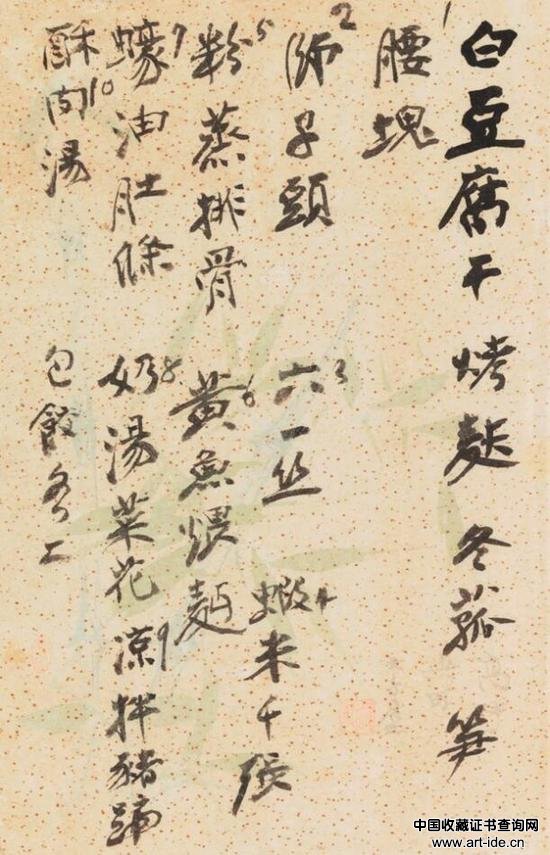 白豆腐干 烤麩 冬菰 笋
腰塊1
獅子頭2 六一丝3 蝦米千張4
粉蒸排骨5 黃魚煨麵6
蠔油肚條7 奶湯菜花8 涼拌豬蹄9
酥肉湯10
包餃各一
中国收藏证书查询网
www.art-ide.cn